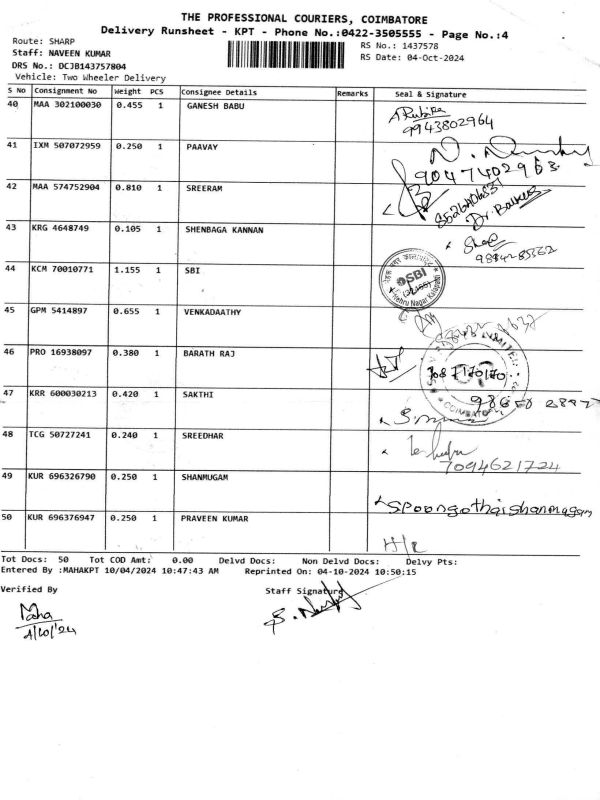 THE PROFESSIONAL COURIERS, COIMBATORE
Delivery Runsheet - KPT - Phone No.:0422-3505555 - Page No.:4
Route: SHARP
RS No.: 1437578
Staff: NAVEEN KUMAR
RS Date: 04-Oct-2024
DRS No.: DCJB143757804
Vehicle: Two Wheeler Delivery
S No Consignment No Weight PCS Consignee Details Remarks Seal & Signature
40 MAA 302100030 0.455 1 GANESH BABU
9943802964
41 IXM 507072959 0.250 1 PAAVAY
9047402963
42 MAA 574752904 0.810 1 SREERAM
43 KRG 4648749 0.105 1 SHENBAGA KANNAN
44 KCM 70010771 1.155 1 SBI
SBI
Nehru Nagar Kalapatti
45 GPM 5414897 0.655 1 VENKADAATHY
46 PRO 16938097 0.380 1 BARATH RAJ
COIMBATORE
47 KRR 600030213 0.420 1 SAKTHI
48 TCG 50727241 0.240 1 SREEDHAR
7094621724
49 KUR 696326790 0.250 1 SHANMUGAM
spoongothaishanmugam
50 KUR 696376947 0.250 1 PRAVEEN KUMAR
Tot Docs: 50 Tot COD Amt: 0.00 Delvd Docs: Non Delvd Docs: Delvy Pts:
Entered By :MAHAKPT 10/04/2024 10:47:43 AM Reprinted On: 04-10-2024 10:50:15
Verified By Staff Signature
Maha
4/10/24